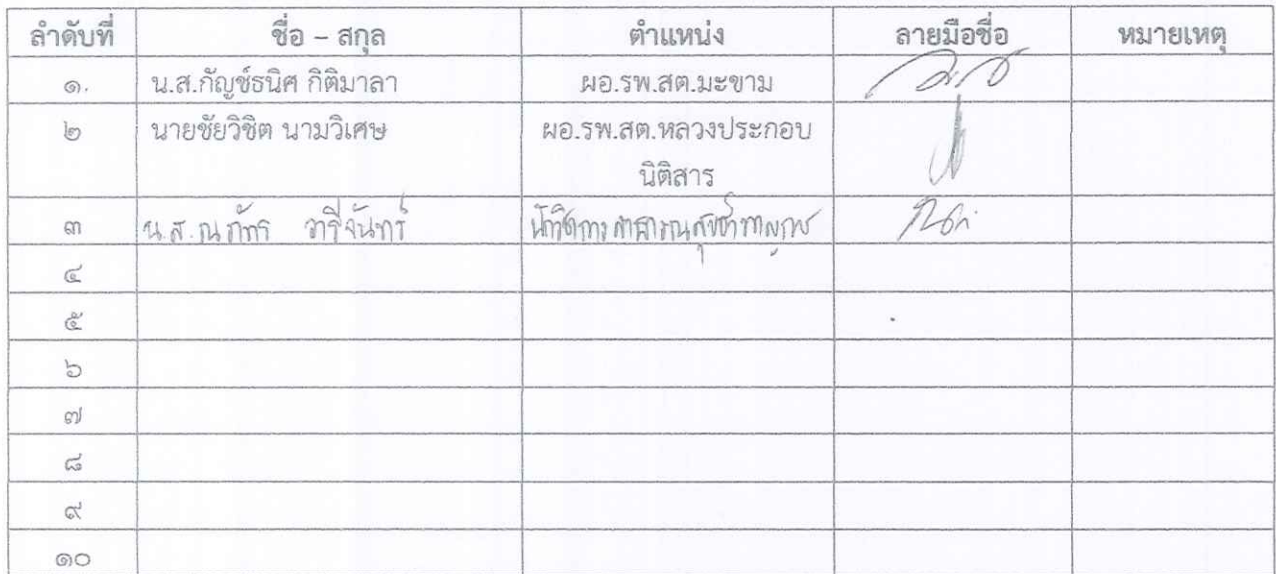 ลำดับที่ ชื่อ – สกุล ตำแหน่ง ลายมือชื่อ หมายเหตุ
๑. น.ส.กัญช์ธนิศ กิติมาลา ผอ.รพ.สต.มะขาม
๒ นายชัยวิชิต นามวิเศษ ผอ.รพ.สต.หลวงประกอบ
นิติสาร
๓ น.ส.ณภัทร วารีจันทร์ นักวิชาการสาธารณสุขชำนาญการ
๔
๕
๖
๗
๘
๙
๑๐